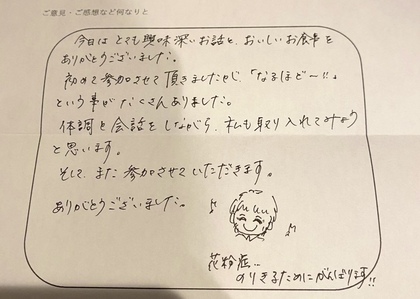 ご意見・ご感想など何なりと
今日は とても興味深いお話と、おいしいお食事を
ありがとうございました。
初めて参加させて頂きましたが「なるほどー!!」
という事が たくさんありました。
体調と会話をしながら、私も取り入れてみよう
と思います。
そして、また参加させていただきます。
ありがとうございました。
花粉症…
のりきるためにがんばります!!